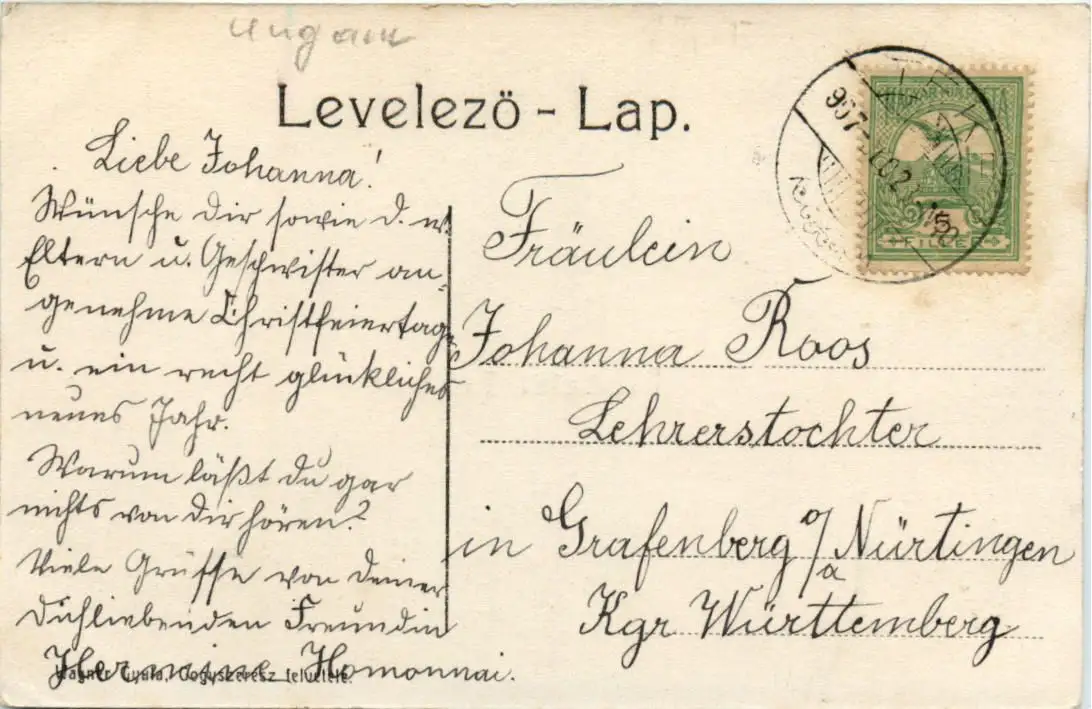 Ungarn
Levelezö - Lap.
Liebe Johanna!
Wünsche dir sowie d. w.
Eltern u. Geschwister an-
genehme Christfeiertage
u. ein recht glückliches
neues Jahr.
Warum läßt du gar
nichts von dir hören?
Viele Grüsse von deiner
dichliebenden Freundin
Hermine Homonnai.
Wagner Gyula, felvétele.
Fräulein
Johanna Roos
Lehrerstochter
in Grafenberg o/a Nürtingen
Kgr Württemberg
MAGYAR KIR. POSTA
5
FILLER
907